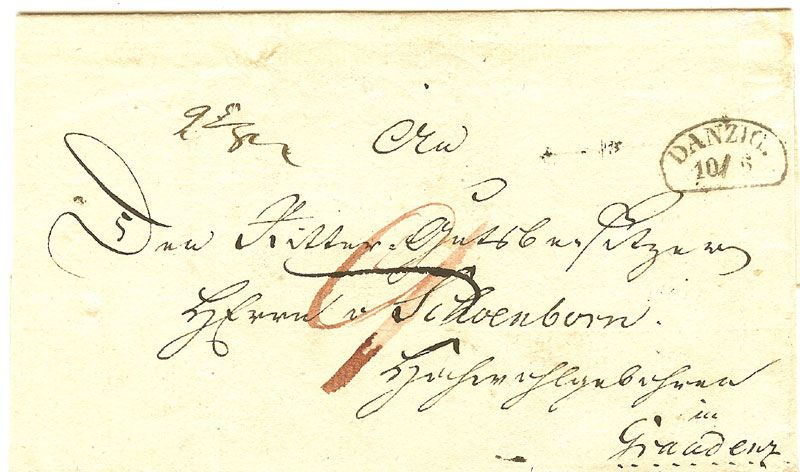 An
DANZIG.
10/6
Den Ritter-Gutsbesitzer
Herrn v Schoenborn.
Hochwohlgebohren
in
Graudenz